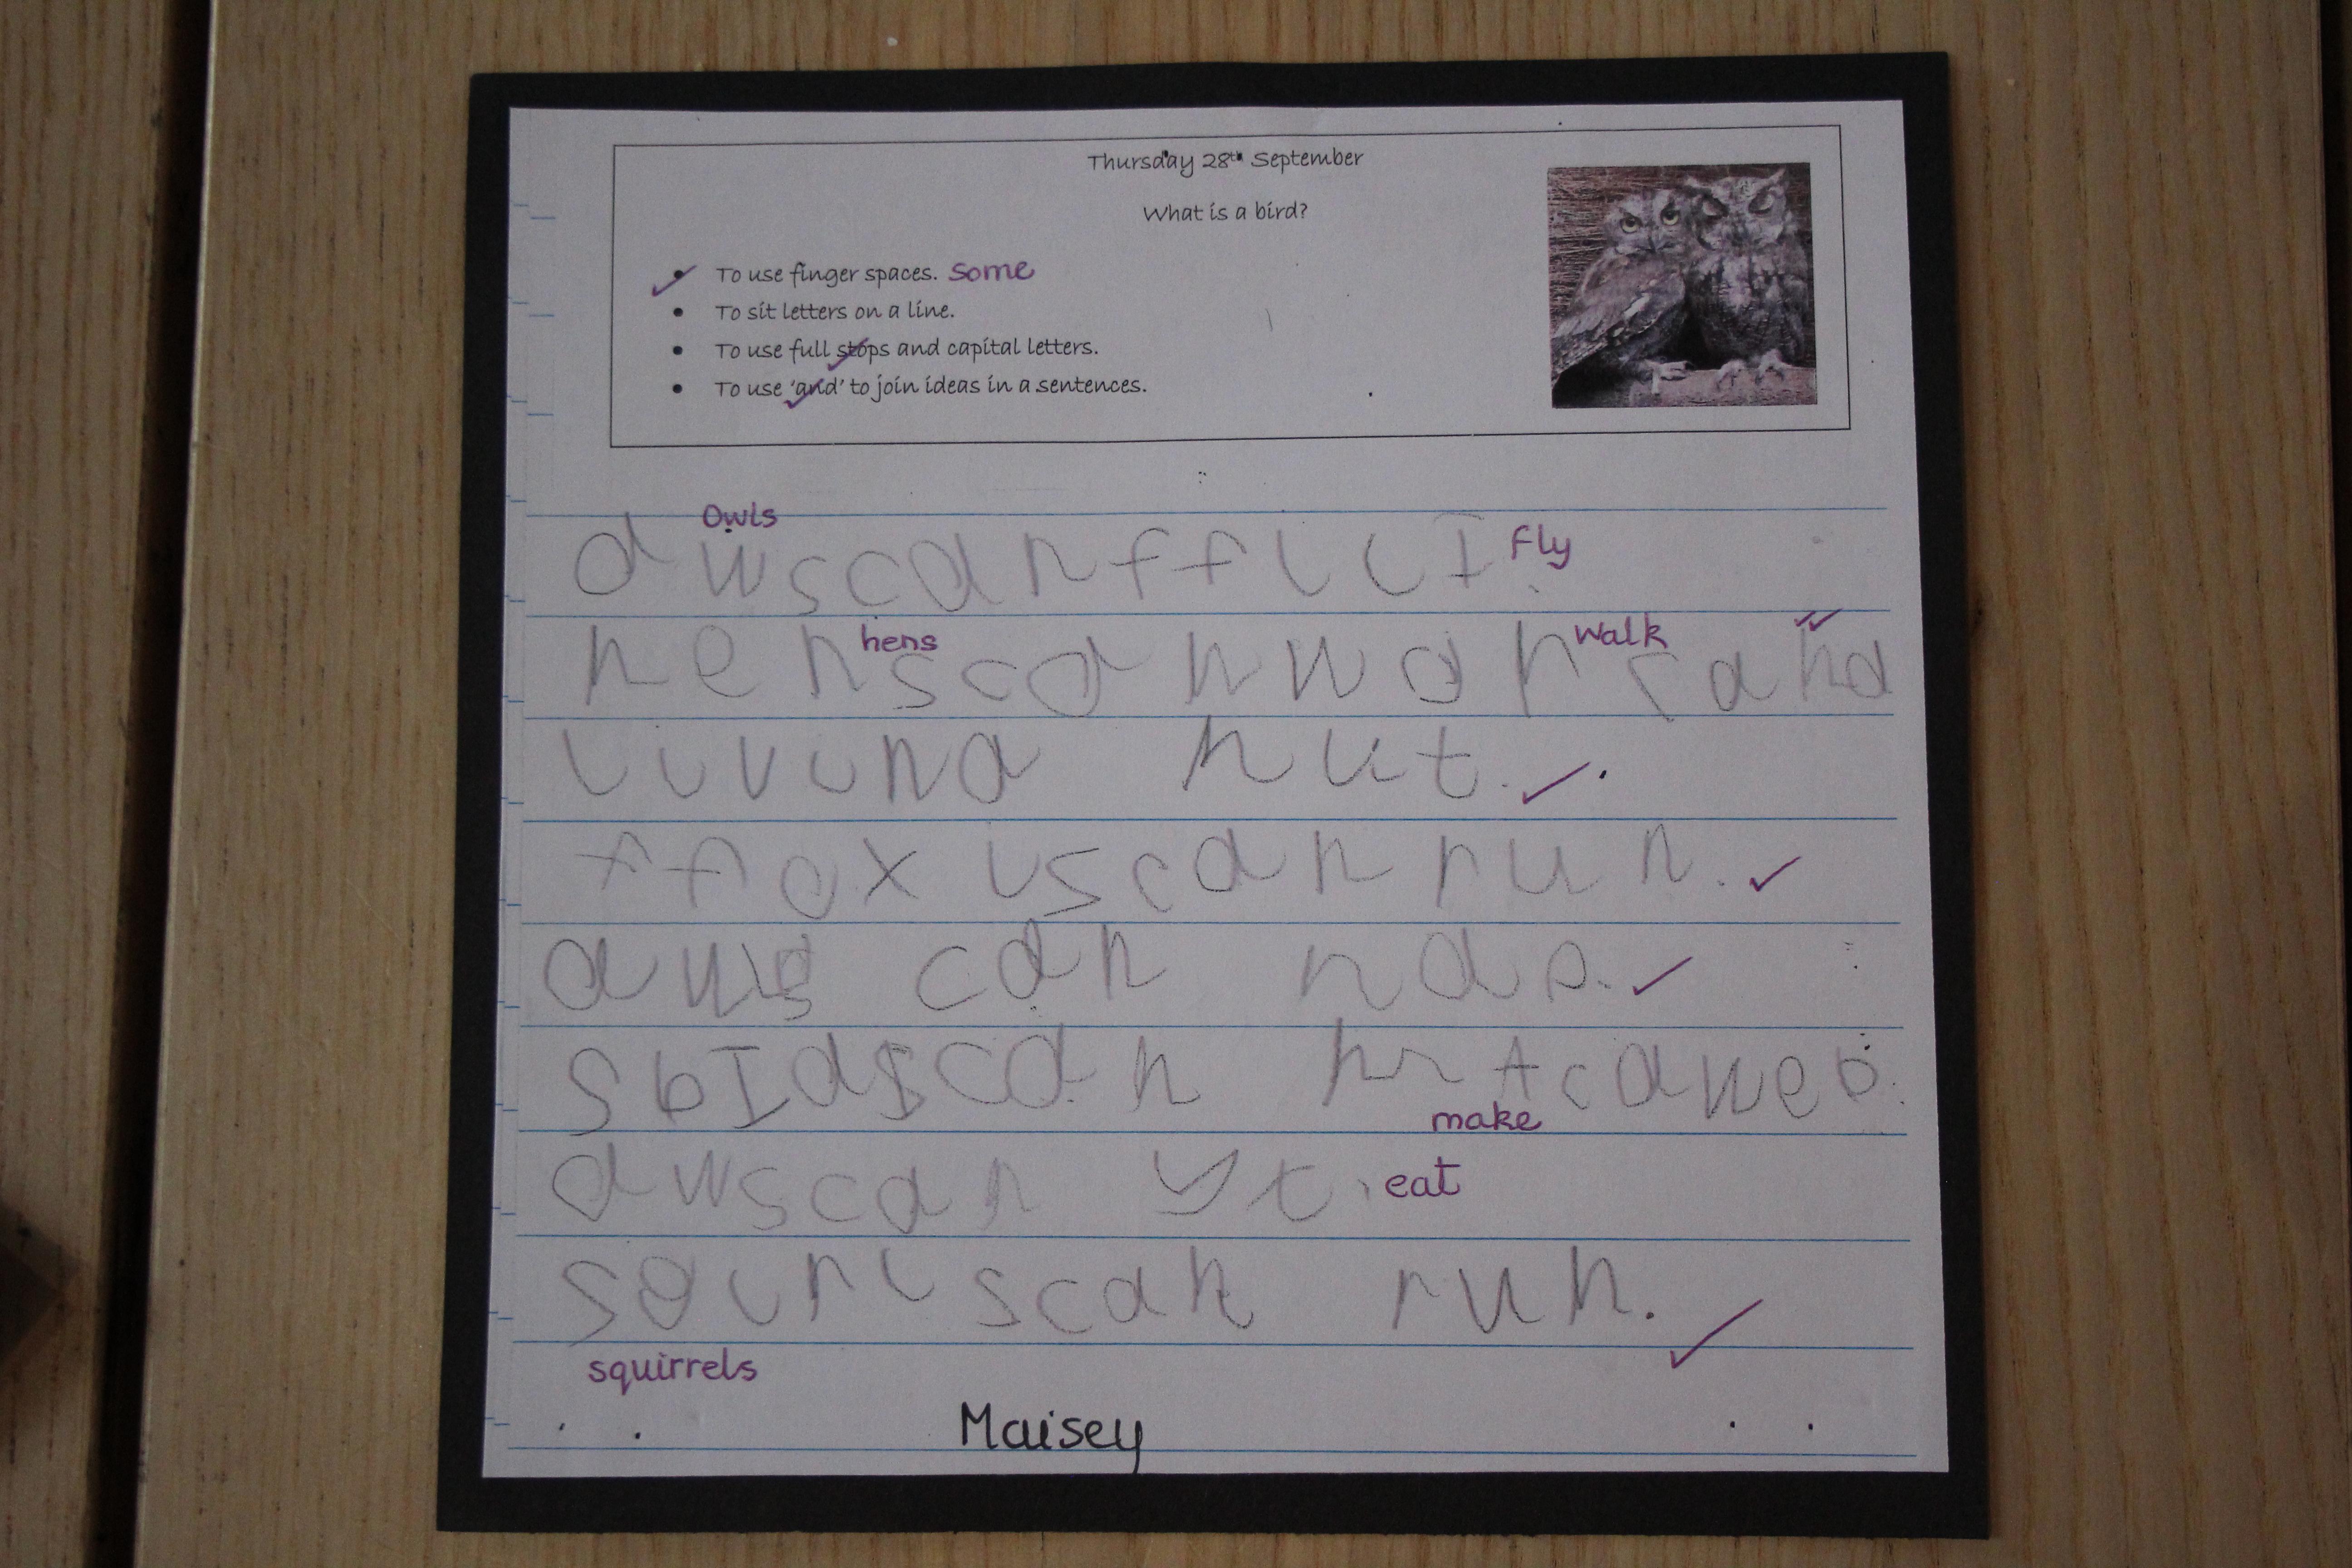 Thursday 28th September
What is a bird?
To use finger spaces. some
To sit letters on a line.
To use full stops and capital letters.
To use 'and' to join ideas in a sentences.
owls
awscanffliI. fly
henscanwah walk cand
hens
livina hut.
ffox iscanrun.
awls can nap.
sbIdscan mrtcaweb.
make
awscan yt. eat
sqiri scan run.
squirrels
Maisey